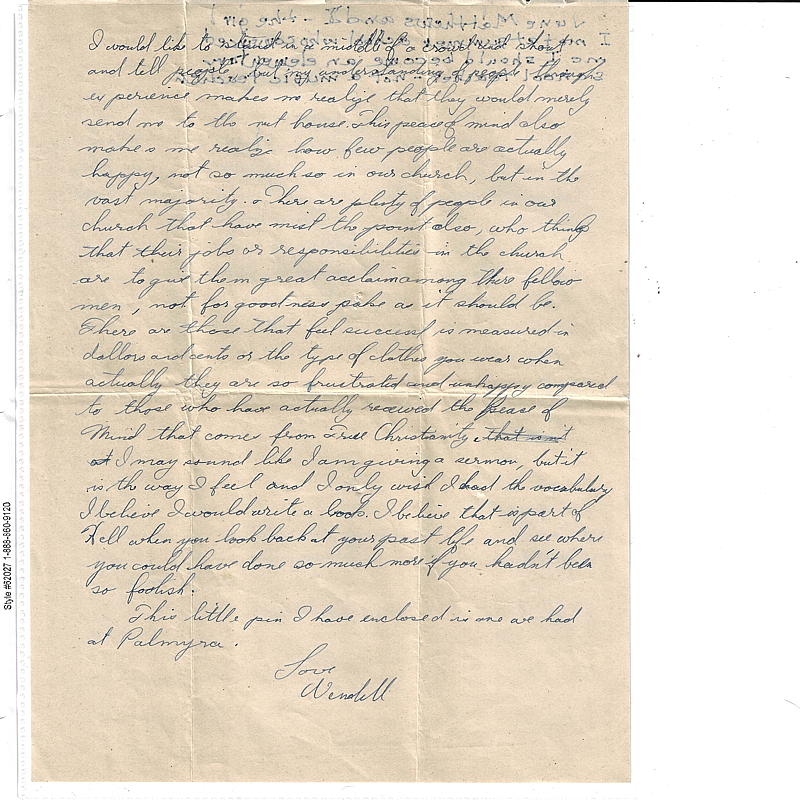 I would like to stand in a middle of a crowd and shout
and tell people, but my understanding of people through
experience makes me realize that they would merely
send me to the nut house. This peace of mind also
makes me realize how few people are actually
happy, not so much so in our church, but in the
vast majority. There are plenty of people in our
church that have mist the point also, who think
that their jobs or responsibilities in the church
are to give them great acclaim among there fellow
men, not for goodness sake as it should be.
There are those that feel success is measured in
dollors and cents or the type of clothes you wear when
actually they are so frustrated and unhappy compared
to those who have actually received the Peace of
Mind that comes from True Christianity, that isn't
I may sound like I am giving a sermon, but it
is the way I feel and I only wish I had the vocabulary
I believe I would write a book. I believe that is part of
Hell when you look back at your past life and see where
you could have done so much more if you hadn't been
so foolish.
This little pin I have enclosed is one we had
at Palmyra.
Love
Wendell
Style #62027 1-888-860-9120